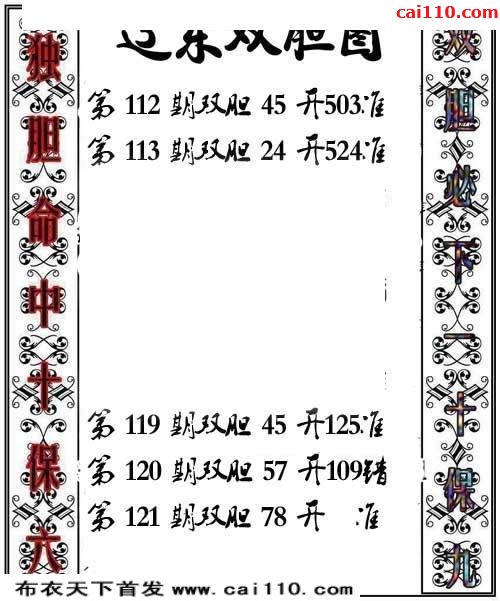 cai110.com
辽东双胆图
独胆命中十保六
第 112 期双胆 45 开503准
第 113 期双胆 24 开524准
第 119 期双胆 45 开125准
第 120 期双胆 57 开109错
第 121 期双胆 78 开 准
双胆必下一十保九
布衣天下首发 www.cai110.com